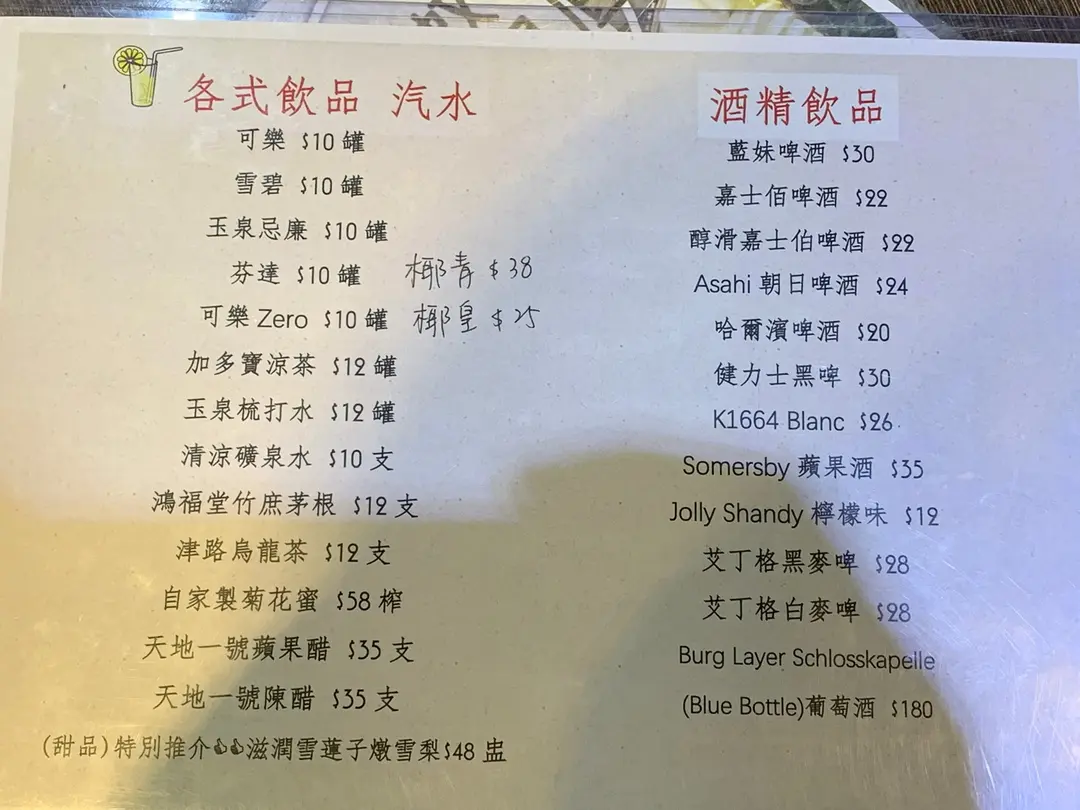 各式飲品 汽水
可樂 $10 罐
雪碧 $10 罐
玉泉忌廉 $10 罐
芬達 $10 罐
椰青 $38
可樂 Zero $10 罐
椰皇 $25
加多寶涼茶 $12 罐
玉泉梳打水 $12 罐
清涼礦泉水 $10 支
鴻福堂竹庶茅根 $12 支
津路烏龍茶 $12 支
自家製菊花蜜 $58 榨
天地一號蘋果醋 $35 支
天地一號陳醋 $35 支
(甜品)特別推介👍👍滋潤雪蓮子燉雪梨$48 盅
酒精飲品
藍妹啤酒 $30
嘉士佰啤酒 $22
醇滑嘉士伯啤酒 $22
Asahi 朝日啤酒 $24
哈爾濱啤酒 $20
健力士黑啤 $30
K1664 Blanc $26
Somersby 蘋果酒 $35
Jolly Shandy 檸檬味 $12
艾丁格黑麥啤 $28
艾丁格白麥啤 $28
Burg Layer Schlosskapelle
(Blue Bottle)葡萄酒 $180